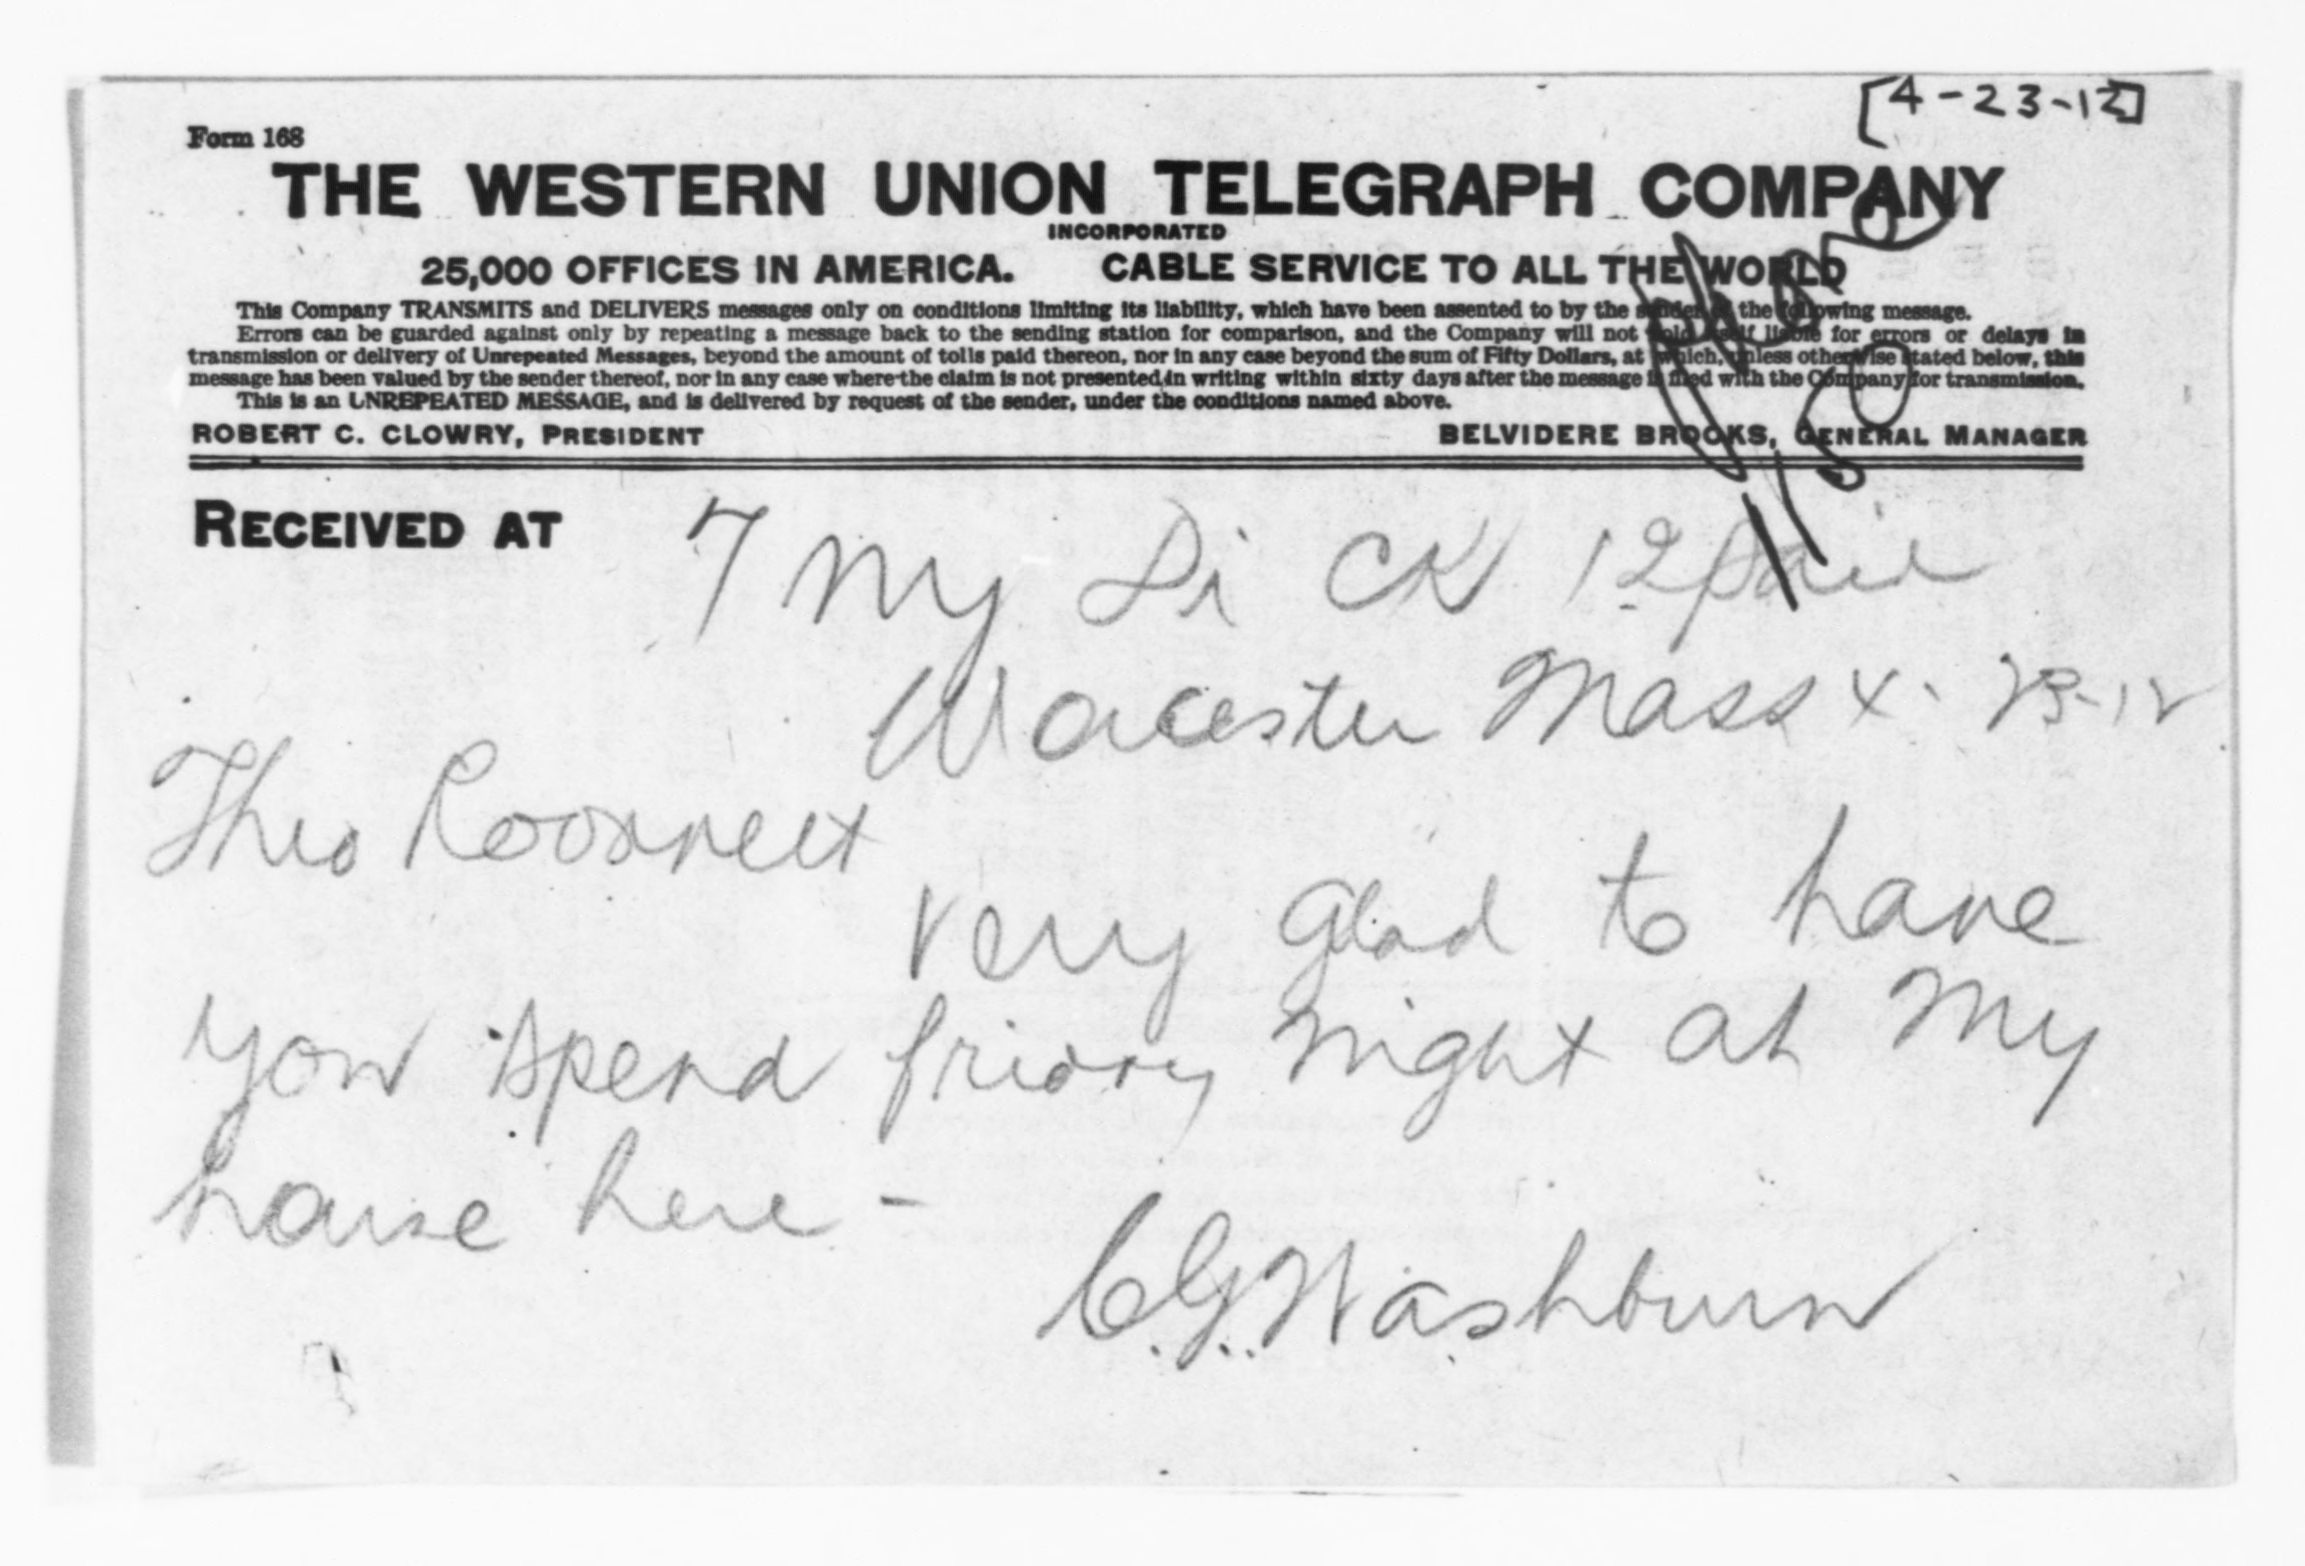 [4-23-12]
Form 168
THE WESTERN UNION TELEGRAPH COMPANY
INCORPORATED
25,000 OFFICES IN AMERICA. CABLE SERVICE TO ALL THE WORLD
This Company TRANSMITS and DELIVERS messages only on conditions limiting its liability, which have been assented to by the sender of the following message.
Errors can be guarded against only by repeating a message back to the sending station for comparison, and the Company will not hold itself liable for errors or delays in
transmission or delivery of Unrepeated Messages, beyond the amount of tolls paid thereon, nor in any case beyond the sum of Fifty Dollars, at which, unless otherwise stated below, this
message has been valued by the sender thereof, nor in any case where the claim is not presented in writing within sixty days after the message is filed with the Company for transmission.
This is an UNREPEATED MESSAGE, and is delivered by request of the sender, under the conditions named above.
ROBERT C. CLOWRY, PRESIDENT BELVIDERE BROOKS, GENERAL MANAGER
RECEIVED AT 7 Ny Di CK 12 paid
Worcester Mass 4. 23-12
Theo Roosevelt
Very glad to have
you spend friday night at my
house here -
C.G. Washburn